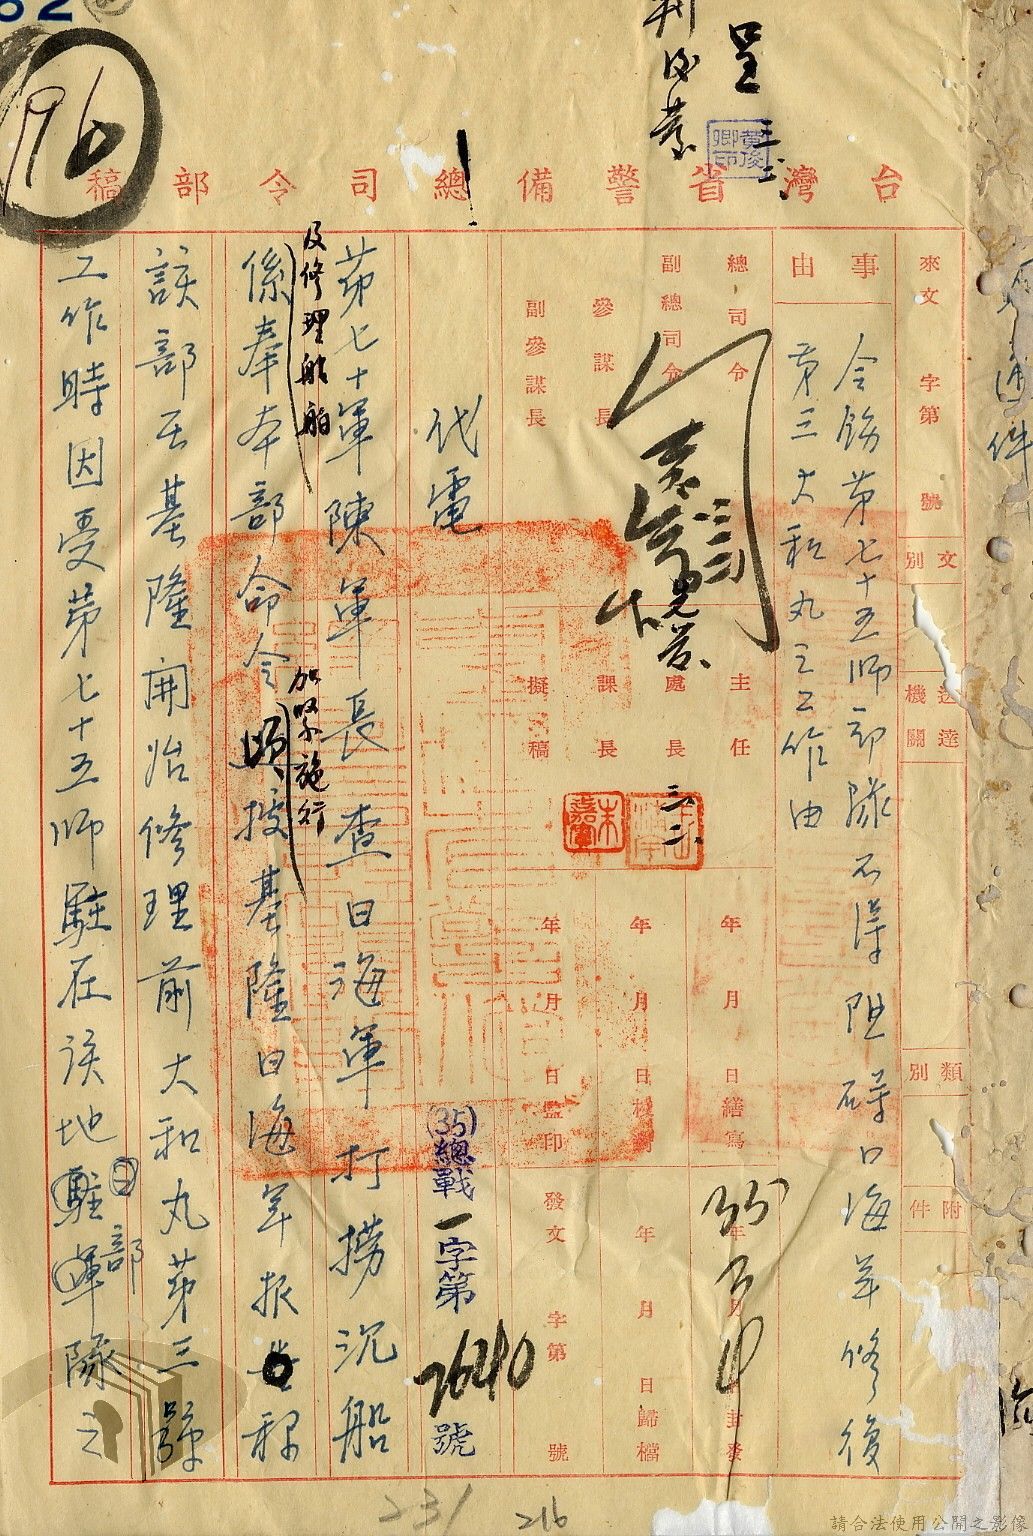 196
呈
三、二、
黃俊卿印
台灣省警備總司令部稿
來文 字第 號
文別
送達機關
類別
附件
事由
令飭第七十五師部隊不得阻碍日海軍修復
第三大和丸之工作由
總司令
副總司令
參謀長
副參謀長
主任
處長
課長
擬稿
三、二、
年 月 日繕寫
年 月 日校對
年 月 日監印
年 月 日封發
年 月 日歸檔
發文 字第 號
代電
(35)總戰一字第 2640 號
第七十軍陳軍長查日海軍打撈沉船
及修理船舶
係奉本部命令
加緊施行
據基隆日海軍報稱
該部在基隆開始修理前大和丸第三號
工作時因受第七十五師駐在該地
部隊之
231
216
請合法使用公開之影像